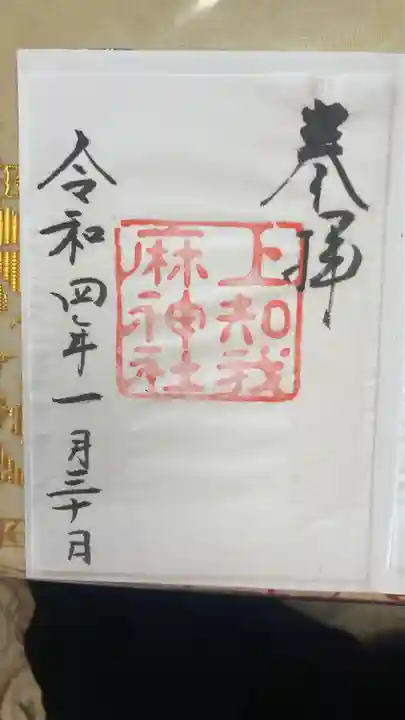 奉拝
上知我
麻神社
令和四年一月三十日